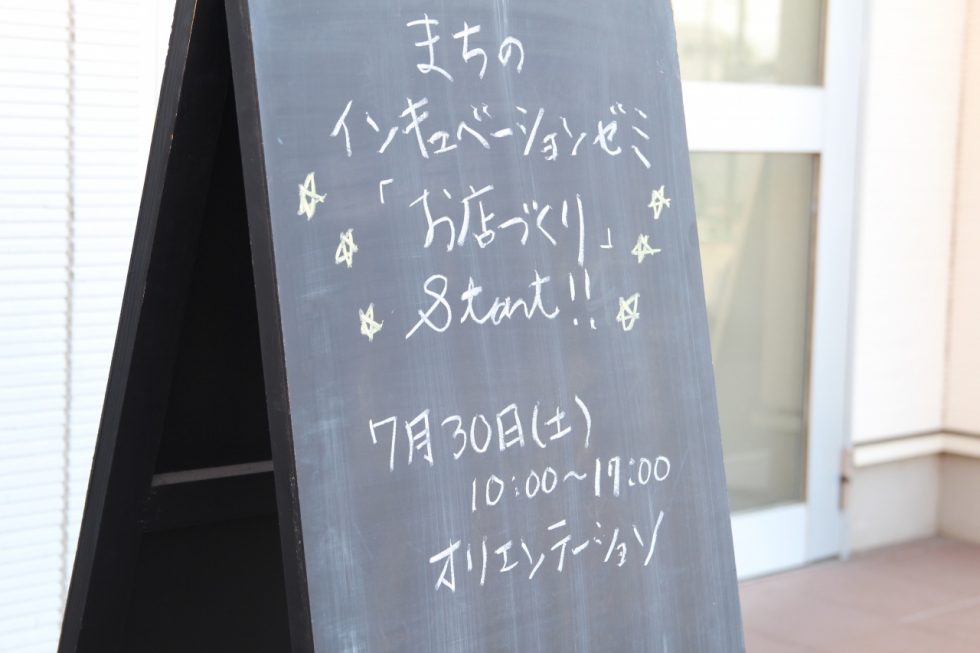 まちの
インキュベーションゼミ
「お店づくり」
Start!!
7月30日(土)
10:00〜17:00
オリエンテーション